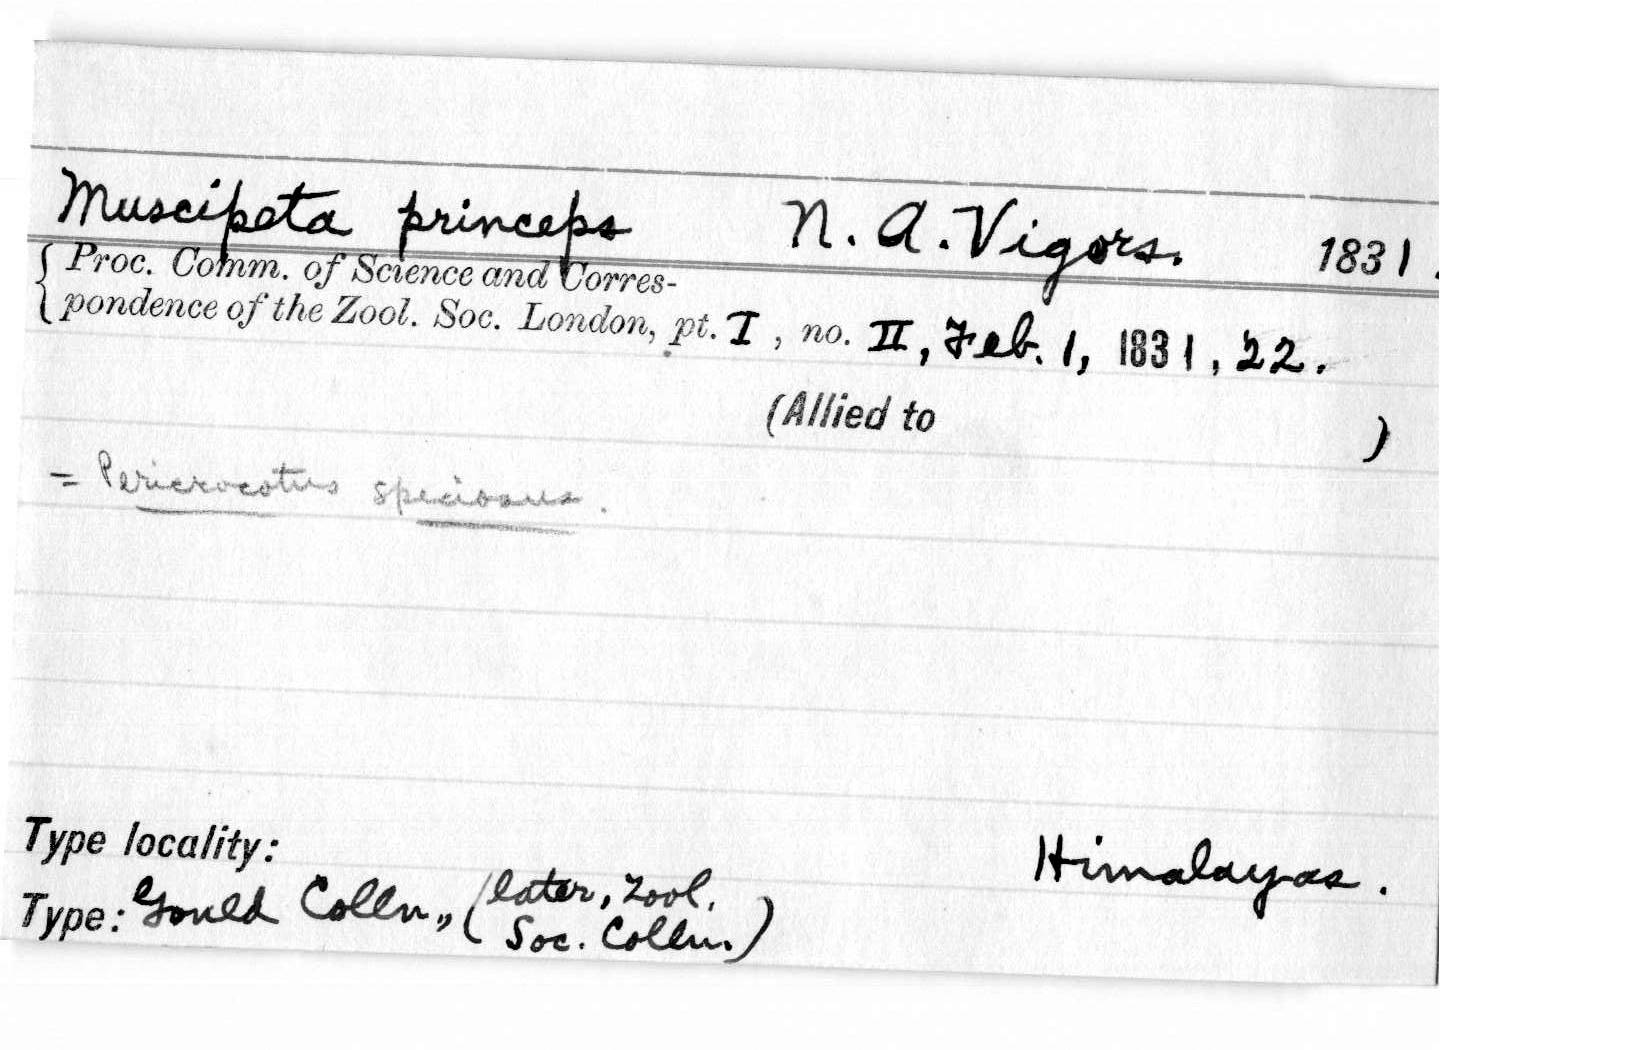 Muscipeta princeps N. A. Vigors. 1831.
Proc. Comm. of Science and Corres-
pondence of the Zool. Soc. London, pt. I, no. II, Feb. 1, 1831, 22.
(Allied to )
= Pericrocotus speciosus.
Type locality: Himalayas.
Type: Gould Colln., (later, Zool.
Soc. Colln.)